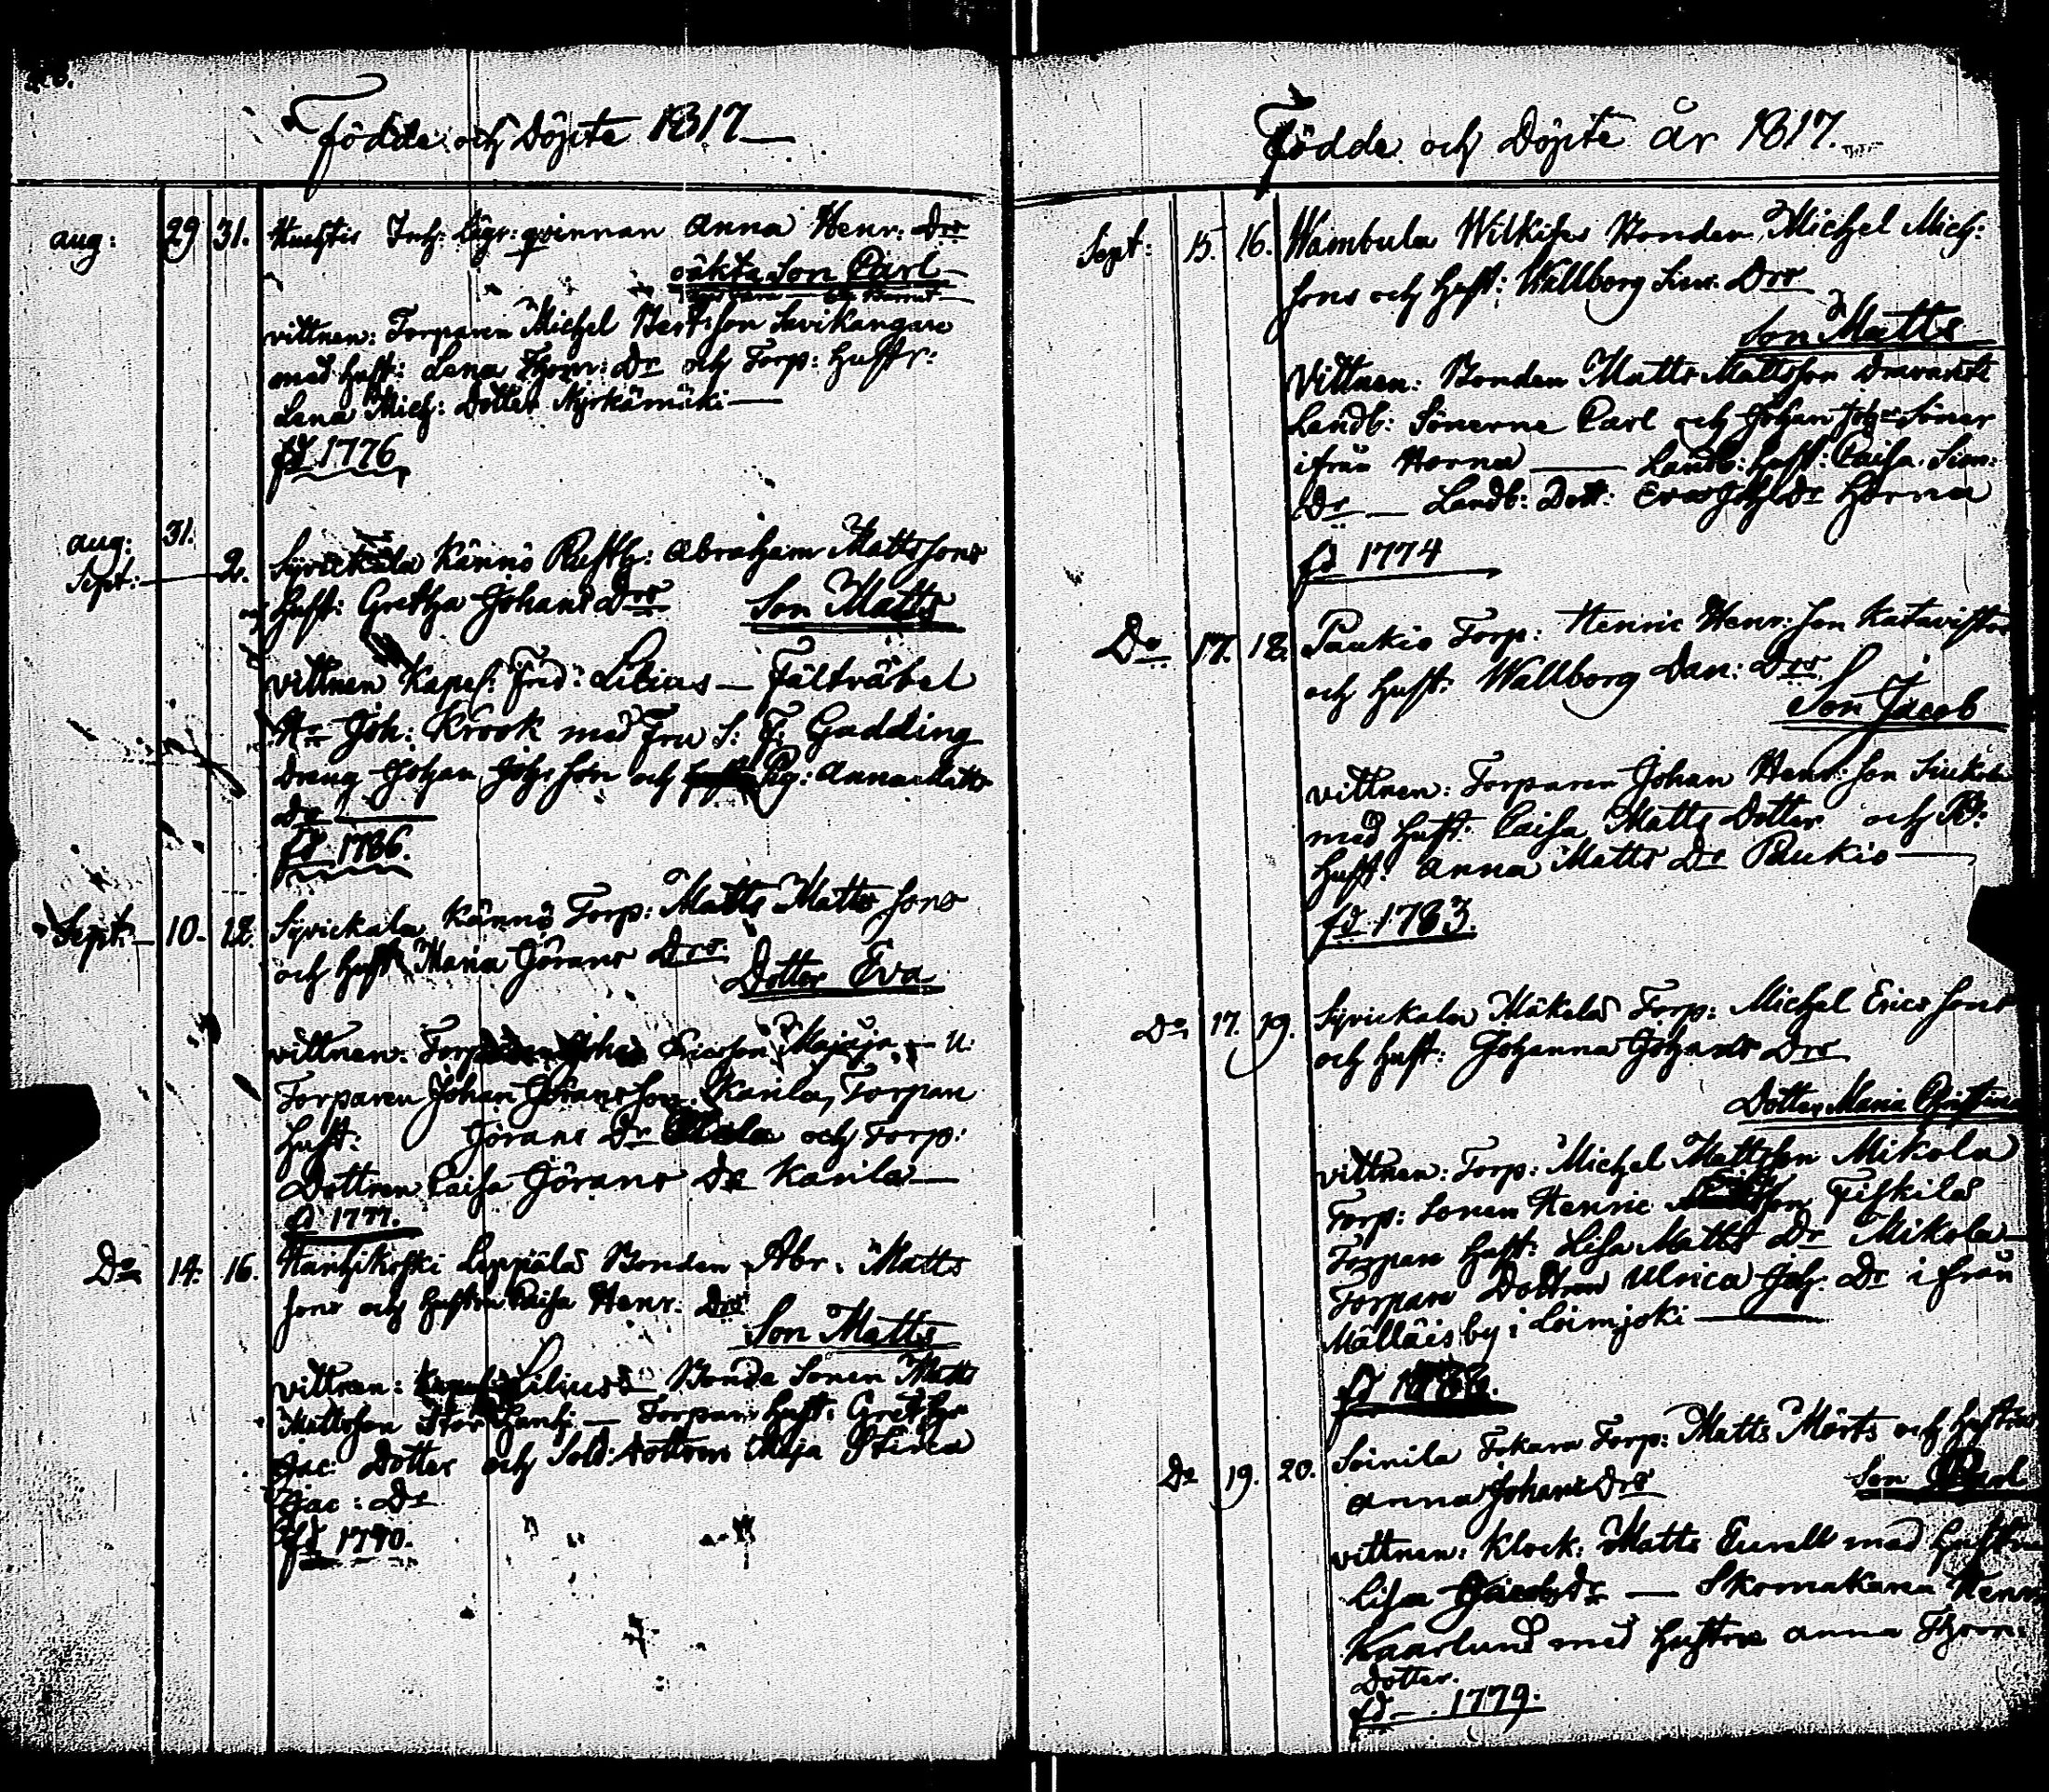 Födde och Döpte 1817
aug: 29 31. Inh: Lägr: qvinnan Anna Henr: Drs
oäkta Son Carl
vittnen: Torparen Michel Bertsson Savikangare
med Hust: Lena Thom: Dr och Torp: Hustr:
Lena Mich: Dotter Myrkämäki
fd 1776
aug: 31.
Sept: 2. Syrickala Kännö Rusth: Abraham Mattssons
Hust: Gretha Johans Drs Son Matts
vittnen Kapel: Fred: Lilius — Fältväbel
Hr Joh: Krook med Fru S: F: Gadding
Dräng Johan Johsson och Pig: Anna Matts
Dr
fd 1786.
Sept: 10. 12. Syrickala Kännö Torp: Matts Matts sons
och Hust Maria Görans Drs
Dotter Eva
vittnen: Ericsson Majaja — u:
Torparen Johan Göransson Kanila, Torpare
Hust: Görans Dr och Torp:
Dottren Caisa Görans Dr Kanila
fd 1777.
Do 14. 16. Leppälä Bonden Abr. Matts
sons och Hustru Caisa Henr: Drs
Son Matts
vittnen: Lilius — Bonde Sonen Matts
Mattsson — Torpare Hust: Gretha
Jac: Dotter och Sold: dottren Maja Stina
Jac: Dr
fd 1790.
Födde och Döpte år 1817.
Sept: 15. 16. Wambula Wilkises Bonden Michel Mich:
sons och Hust: Wallborg Sim: Drs
Son Matts
Vittnen: Bonden Matts Mattsson
Landb: Sönerne Carl och Johan Joh: Söner
ifrån Horna — Landb: Hust: Caisa Sim:
Dr — Landb: Dott: Eva Joh: Dr Horna
fd 1774
Do 17. 18. Paukio Torp: Henric Henr: son Katavisto
och Hust: Wallborg Dan: Drs
Son Jacob
vittnen: Torparen Johan Henr: son
med Hust: Caisa Matts Dotter och
Hust: Anna Matts Dr Paukio
fd 1783.
Do 17. 19. Syrickala Mäkelä Torp: Michel Erics sons
och Hust: Johanna Johans Drs
Dotter Maria Christina
vittnen: Torp: Michel Mattsson Mikola
Torp: Sonen Henric
Torpare Hust: Lisa Matts Dr Mikola
Torpare Dottren Ulrica Joh. Dr ifrån
Mälläis by i Loimjoki
Do 19. 20. Soinila Torp: Matts Mörts och Hustrus
Anna Johans Drs Son Carl
vittnen: Klock: Matts med Hustru
Lisa Jacobs Dr — Skomakaren Henr
Kaarlund med Hustru Anna Thom:
Dotter.
fd — 1779.